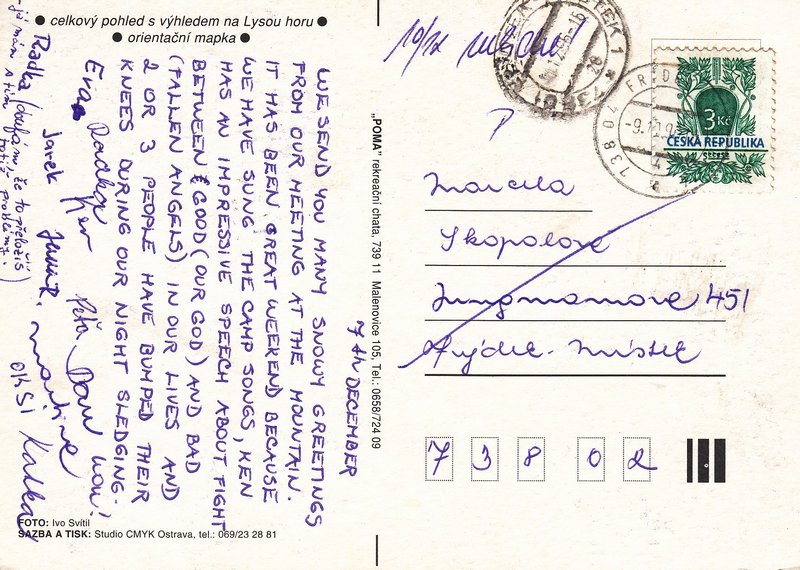 ● celkový pohled s výhledem na Lysou horu ●
● orientační mapka ●
7th DECEMBER
WE SEND YOU MANY SNOWY GREETINGS
FROM OUR MEETING AT THE MOUNTAIN.
IT HAS BEEN GREAT WEEKEND BECAUSE
WE HAVE SUNG THE CAMP SONGS, KEN
HAS AN IMPRESSIVE SPEECH ABOUT FIGHT
BETWEEN GOOD (OUR GOD) AND BAD
(FALLEN ANGELS) IN OUR LIVES AND
2 OR 3 PEOPLE HAVE BUMPED THEIR
KNEES DURING OUR NIGHT SLEDGING.
Eva Radka Ken Péťa Dan WOW!
Jarek martina OKSI Katka
Radka (doufám, že to přeložíš
- já mám s tím
totiž problémy.)
FOTO: Ivo Svítil
SAZBA A TISK: Studio CMYK Ostrava, tel.: 069/23 28 81
„POMA" rekreační chata, 739 11 Malenovice 105, Tel.: 0658/724 09
10/12
3 Kč
ČESKÁ REPUBLIKA
738 04
Marcela
Skopalová
Jungmannova 451
Frýdek-Místek
738 02